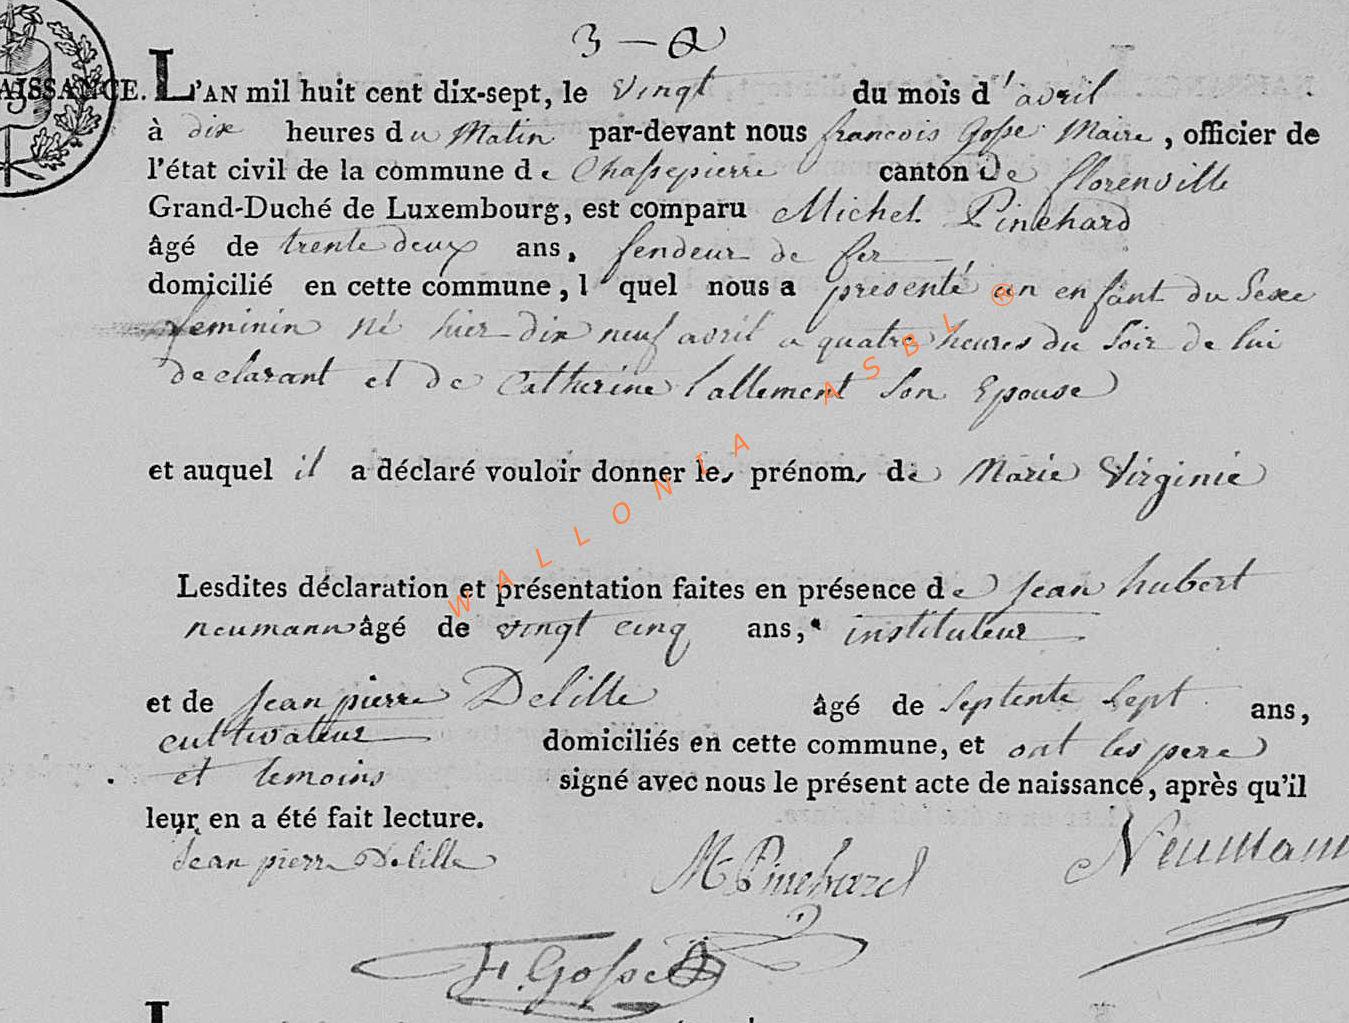 3 – a
AISSANCE. L'AN mil huit cent dix-sept, le vingt du mois d'avril
à dix heures du Matin par-devant nous francois Gosse Maire, officier de
l'état civil de la commune de Chassepierre canton De florenville
Grand-Duché de Luxembourg, est comparu Michel Pinchard
âgé de trente deux ans, fendeur de fer
domicilié en cette commune, l quel nous a presenté un enfant du Sexe
feminin né hier dix neuf avril a quatre heures du Soir de lui
declarant et de Catherine lallement Son Epouse
et auquel il a déclaré vouloir donner les prénoms de Marie Virginie
Lesdites déclaration et présentation faites en présence de jean hubert
neumann âgé de vingt cinq ans, instituteur
et de jean pierre Delille âgé de septente sept ans,
cultivateur domiciliés en cette commune, et ont les pere
et temoins signé avec nous le présent acte de naissance, après qu'il
leur en a été fait lecture.
Jean pierre Delille M Pinchard Neumann
F. Gosse
WALLONIA ASBL ®